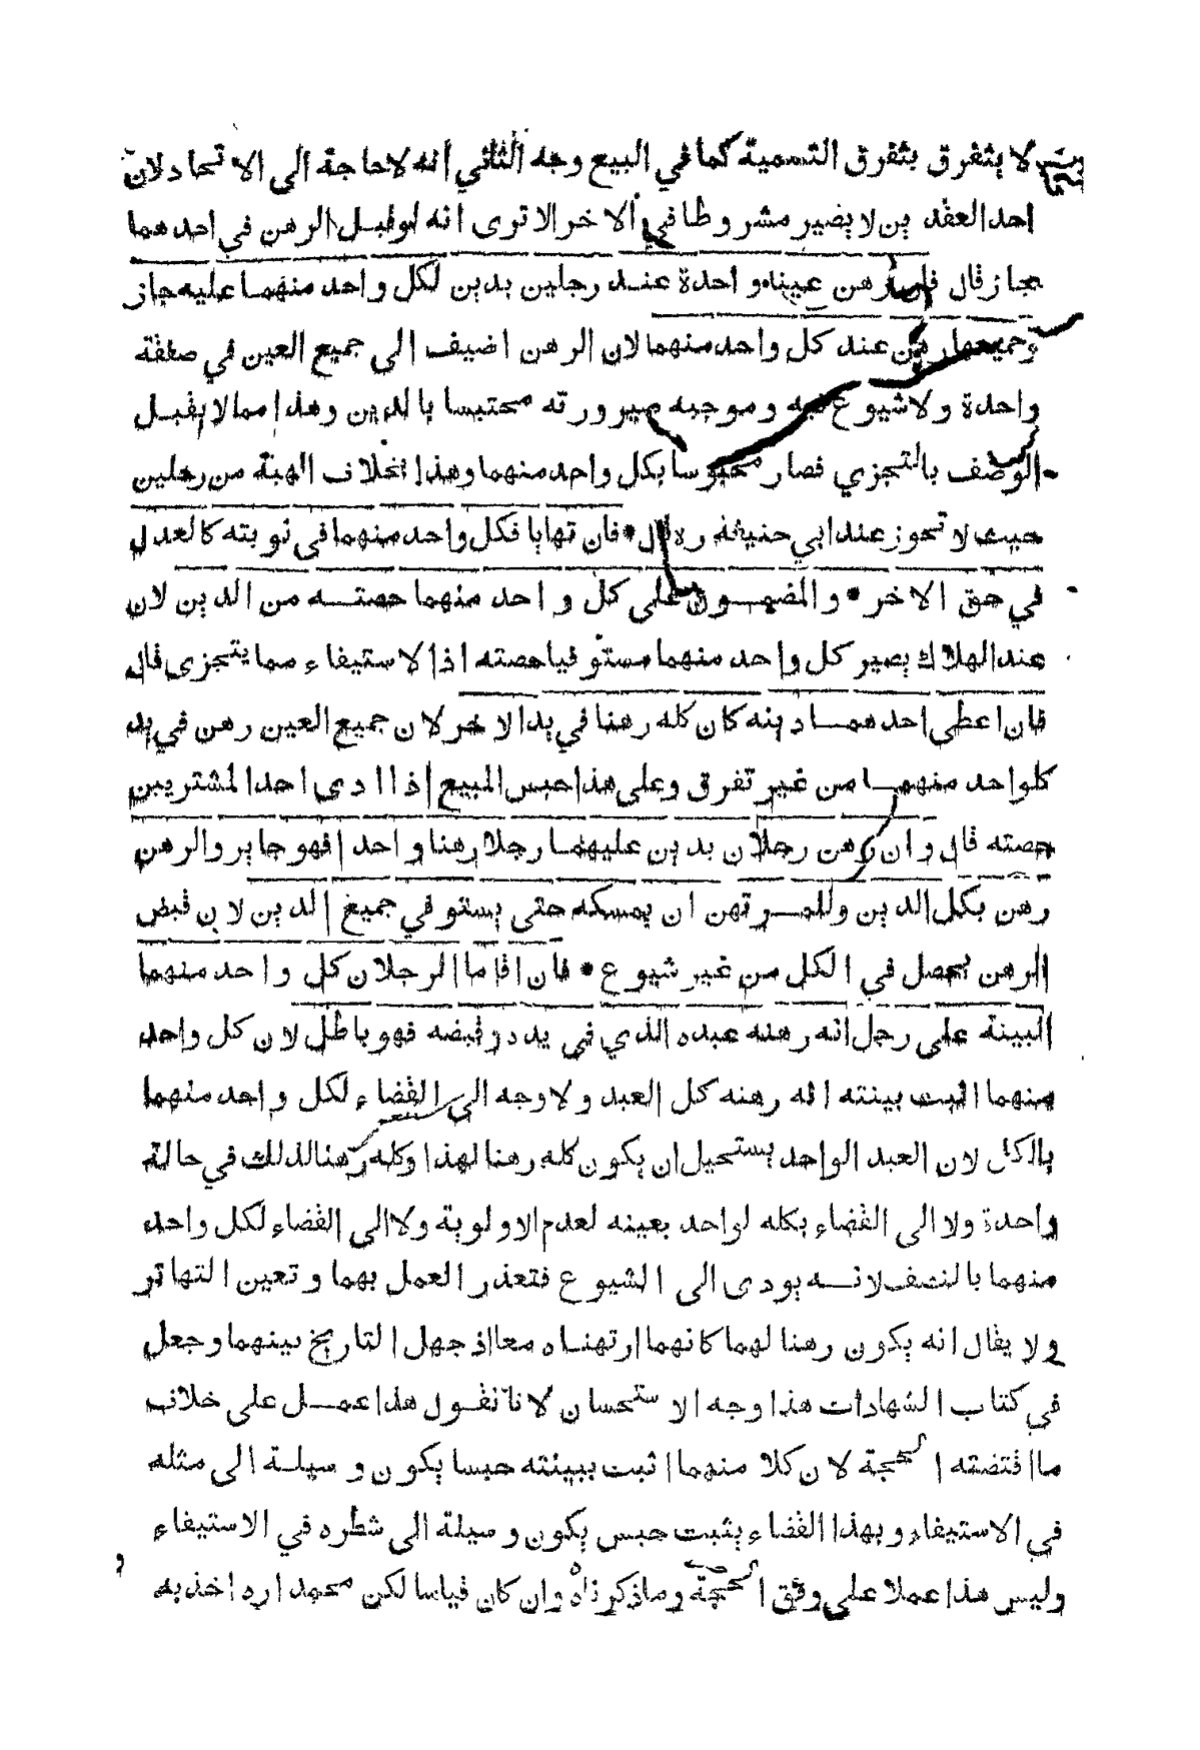 لا يتفرق بتفرق التسمية كما في البيع وجه الثاني انه لا حاجة الى الاتحاد لان
احد العقدين لا يصير مشروطا في الاخر الا ترى انه لو قبل الرهن في احدهما
جاز قال فان رهن عينا واحدة عند رجلين بدين لكل واحد منهما عليه جاز
وجميعها رهن عند كل واحد منهما لان الرهن اضيف الى جميع العين في صفقة
واحدة ولا شيوع فيه وموجبه صيرورته محتبسا بالدين وهذا مما لا يقبل
الوصف بالتجزي فصار محبوسا بكل واحد منهما وهذا بخلاف الهبة من رجلين
حيث لا تجوز عند ابي حنيفة ره قال • فان تهايا فكل واحد منهما في نوبته كالعدل
في حق الاخر • والمضمون على كل واحد منهما حصته من الدين لان
عند الهلاك يصير كل واحد منهما مستوفيا حصته اذ الاستيفاء مما يتجزى قال
فان اعطى احدهما دينه كان كله رهنا في يد الاخر لان جميع العين رهن في يد
كل واحد منهما من غير تفرق وعلى هذا حبس المبيع اذا ادى احد المشتريين
حصته قال وان رهن رجلان بدين عليهما رجلا رهنا واحدا فهو جايز والرهن
رهن بكل الدين وللمرتهن ان يمسكه حتى يستوفي جميع الدين لان قبض
الرهن يحصل في الكل من غير شيوع • فان اقاما الرجلان كل واحد منهما
البينة على رجل انه رهنه عبده الذي في يده وقبضه فهو باطل لان كل واحد
منهما اثبت ببينته انه رهنه كل العبد ولا وجه الى القضاء لكل واحد منهما
بالكل لان العبد الواحد يستحيل ان يكون كله رهنا لهذا وكله رهنا لذلك في حالة
واحدة ولا الى القضاء بكله لواحد بعينه لعدم الاولوية ولا الى القضاء لكل واحد
منهما بالنصف لانه يودى الى الشيوع فتعذر العمل بهما وتعين التهاتر
ولا يقال انه يكون رهنا لهما كانهما ارتهناه معا اذ جهل التاريخ بينهما وجعل
في كتاب الشهادات هذا وجه الاستحسان لانا نقول هذا عمل على خلاف
ما اقتضته الحجة لان كلا منهما اثبت ببينته حبسا يكون وسيلة الى مثله
في الاستيفاء وبهذا القضاء يثبت حبس يكون وسيلة الى شطره في الاستيفاء
وليس هذا عملا على وفق الحجة وما ذكرناه وان كان قياسا لكن محمدا ره اخذ به